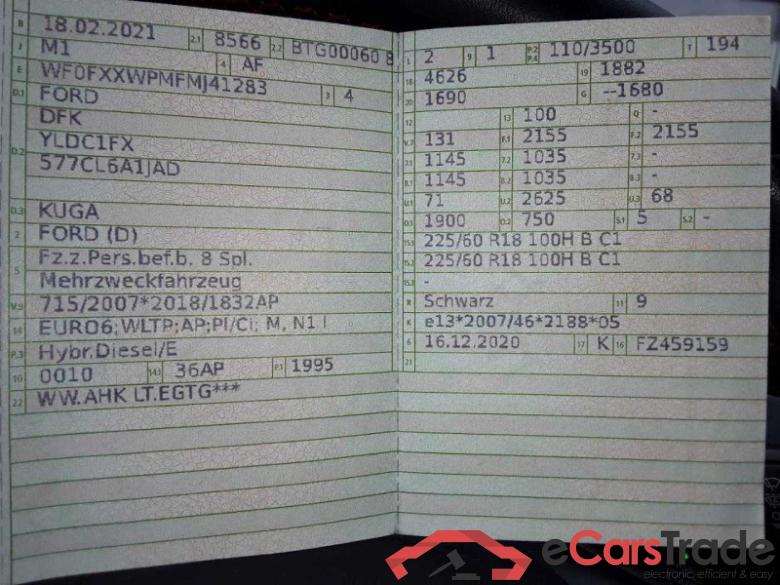 B 18.02.2021 2.1 8566 2.2 BTG00060 8
J M1 4 AF
E WF0FXXWPMFMJ41283 3 4
D.1 FORD
DFK
D.2 YLDC1FX
577CL6A1JAD
D.3 KUGA
2 FORD (D)
5 Fz.z.Pers.bef.b. 8 Spl.
Mehrzweckfahrzeug
V.9 715/2007*2018/1832AP
14 EURO6;WLTP;AP;PI/CI; M, N1 I
P.3 Hybr.Diesel/E
10 0010 14.1 36AP P.1 1995
22 WW.AHK LT.EGTG***
L 2 9 1 P.2 P.4 110/3500 T 194
18 4626 19 1882
20 1690 G --1680
12 13 100 Q -
V.7 131 F.1 2155 F.2 2155
7.1 1145 7.2 1035 7.3 -
8.1 1145 8.2 1035 8.3 -
U.1 71 U.2 2625 U.3 68
O.1 1900 O.2 750 S.1 5 S.2 -
15.1 225/60 R18 100H B C1
15.2 225/60 R18 100H B C1
15.3 -
R Schwarz 11 9
K e13*2007/46*2188*05
6 16.12.2020 17 K 16 FZ459159
21
eCarsTrade
electronic, efficient & easy